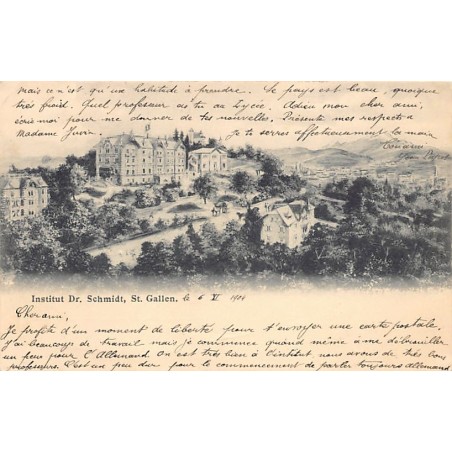 mais ce n'est qu'une habitude à prendre. Le pays est beau, quoique
très froid. Quel professeur as tu au Lycée. Adieu mon cher ami,
écris moi pour me donner de tes nouvelles. Présente mes respects a
Madame Je te serres affectueusement la main
Institut Dr. Schmidt, St. Gallen. le 6 XI 1904
Cher ami,
Je profite d'un moment de liberté pour t'envoyer une carte postale.
J'ai beaucoup de travail mais je commence quand même à me débrouiller
un peu pour l'Allemand. On est très bien à l'institut nous avons de très bons
professeurs. C'est un peu dur pour le commencement de parler toujours allemand